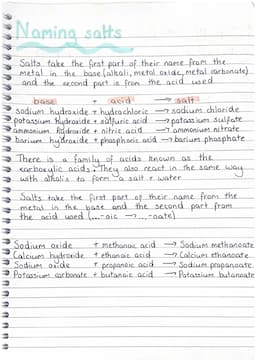 Naming salts
Salts take the first part of their name from the
metal in the base (alkali, metal oxide, metal carbonate)
and the second part is from the acid used
base + acid → salt
sodium hydroxide + hydrochloric → sodium chloride
potassium hydroxide + sulfuric acid → potassium sulfate
ammonium hydroxide + nitric acid → ammonium nitrate
barium hydroxide + phosphoric acid → barium phosphate
There is a family of acids known as the
carboxylic acids. They also react in the same way
with alkalis to form a salt + water
Salts take the first part of their name from the
metal in the base and the second part from
the acid used (...-oic → ...-oate)
Sodium oxide + methanoic acid → Sodium methanoate
Calcium hydroxide + ethanoic acid → Calcium ethanoate
Sodium oxide + propanoic acid → Sodium propanoate
Potassium carbonate + butanoic acid → Potassium butanoate